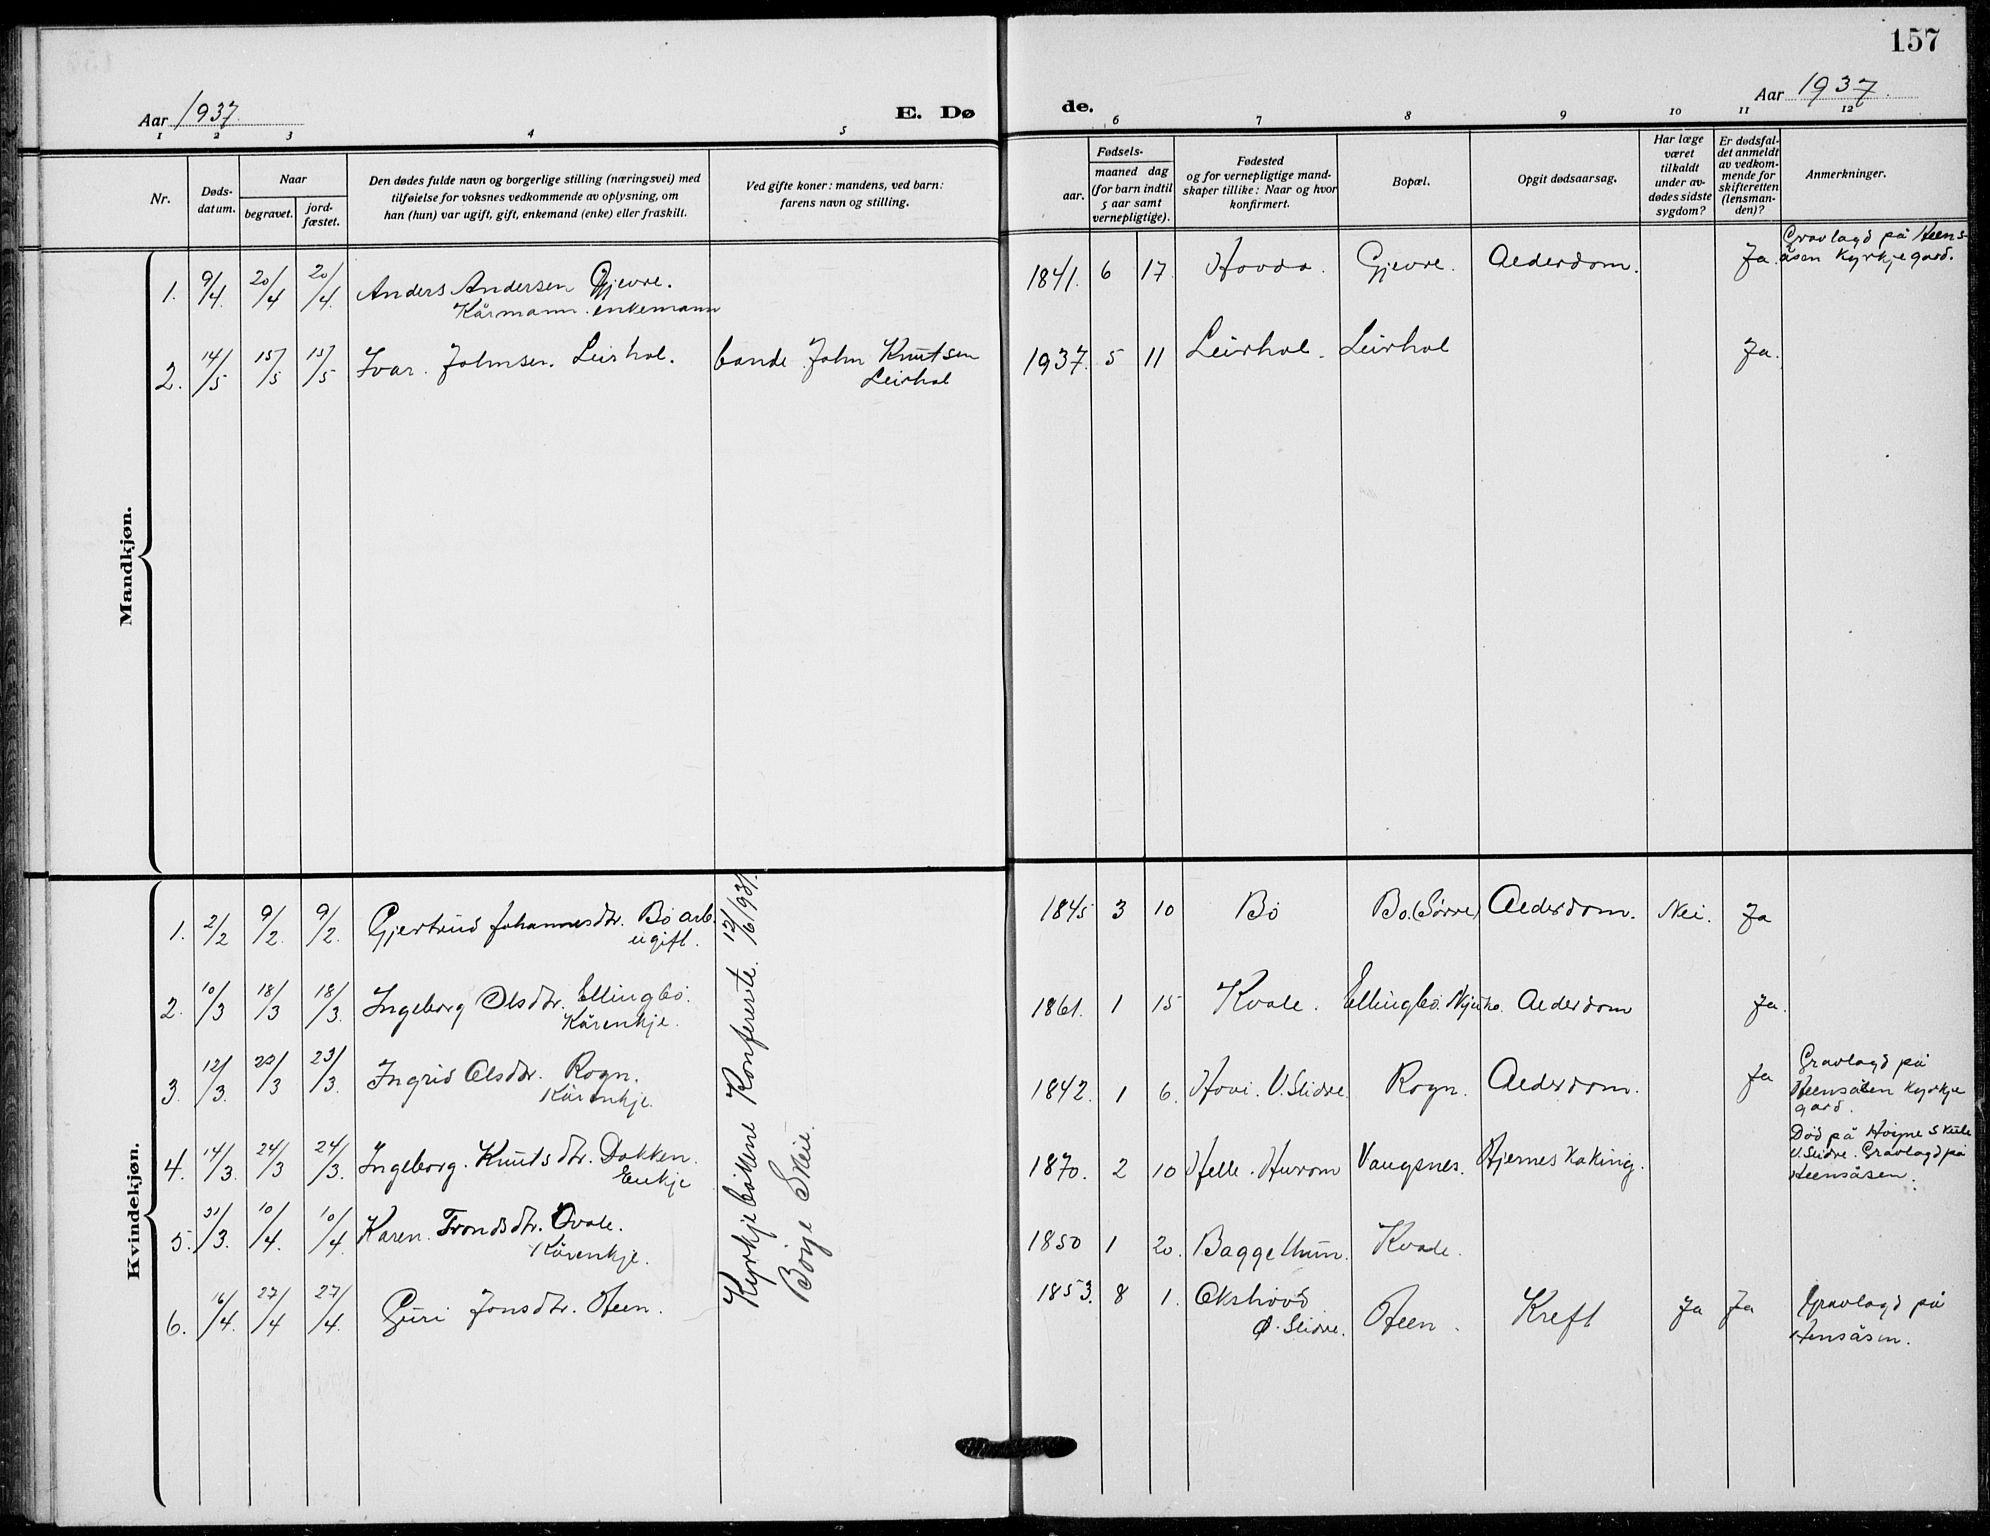 157
Aar 1937
E. Dø
de.
Aar 1937.
1 2 3 4 5
6 7 8 9 10 11 12
Nr.
Døds-
datum.
Naar
begravet.
jord-
fæstet.
Den dødes fulde navn og borgerlige stilling (næringsvei) med
tilføielse for voksnes vedkommende av oplysning, om
han (hun) var ugift, gift, enkemand (enke) eller fraskilt.
Ved gifte koner: mandens, ved barn:
farens navn og stilling.
Fødsels-
aar.
maaned dag
(for barn indtil
5 aar samt
vernepligtige).
Fødested
og for vernepligtige mand-
skaper tillike: Naar og hvor
konfirmert.
Bopæl.
Opgit dødsaarsag.
Har læge
været
tilkaldt
under av-
dødes sidste
sygdom?
Er dødsfal-
det anmeldt
av vedkom-
mende for
skifteretten
(lensman-
den)?
Anmerkninger.
Mandkjøn.
1. 9/4. 20/4 20/4. Anders Andersen Gjevre.
Kårmann. enkemann
1841. 6 17. Hovda. Gjevre. Alderdom. Ja.
Gravlagd på Heens-
åsen Kyrkjegard.
2. 14/5 15/5 15/5 Ivar. Johnsen. Leirhol. bonde John Knutsen
Leirhol
1937. 5 11 Leirhol. Leirhol Ja.
Kvindekjøn.
1. 2/2 9/2. 9/2. Gjertrud Johannesdtr. Bø arb.
ugift.
1845 3 10 Bø Bø. (Sørre) Alderdom. Nei. Ja
2. 10/3 18/3 18/3. Ingeborg Olsdtr. Ellingbø.
Kårenkje.
1861. 1 15 Kvale. Ellingbø. Alderdom Ja.
3. 12/3. 22/3 23/3. Ingrid Olsdtr. Rogn.
Kårenkje.
1842. 1 6. Hovi. V. Slidre. Rogn. Alderdom. Ja
Gravlagd på
Heensåsen Kyrkje
gard.
4. 14/3. 24/3 24/3. Ingeborg. Knutsdtr. Dokken.
Enkje
1870. 2 10 Helle. Hurom Vangsnes. Hjernes
Død på Høgne Skule
V. Slidre. Gravlagd på
Heensåsen.
5. 31/3. 10/4. 10/4 Karen. Trondsdtr. Kvale.
Kårenkje.
1850 1 20. Baggethun. Kvale.
6. 16/4. 27/4 27/4. Guri Jonsdtr. Heen.
1853. 8 1. Okshovd
Ø. Slidre. Heen. Kreft Ja Ja
Gravlagd på
Hensåsen.
Kyrkjebøkene Konfererte 12/6 1937.
Boye Skeie.